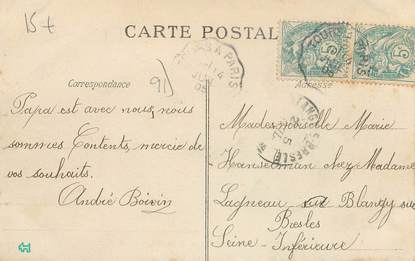 15+
CARTE POSTAL
TOURS A PARIS
PARIS
Correspondance
91)
Adresse
Papa est avec nous, nous
sommes Contents, merci de
vos souhaits.
André Boivin
Mademoiselle Marie
Hanselman chez Madame
Lagneau sur Blangy sur
Bresles
Seine-Inférieure